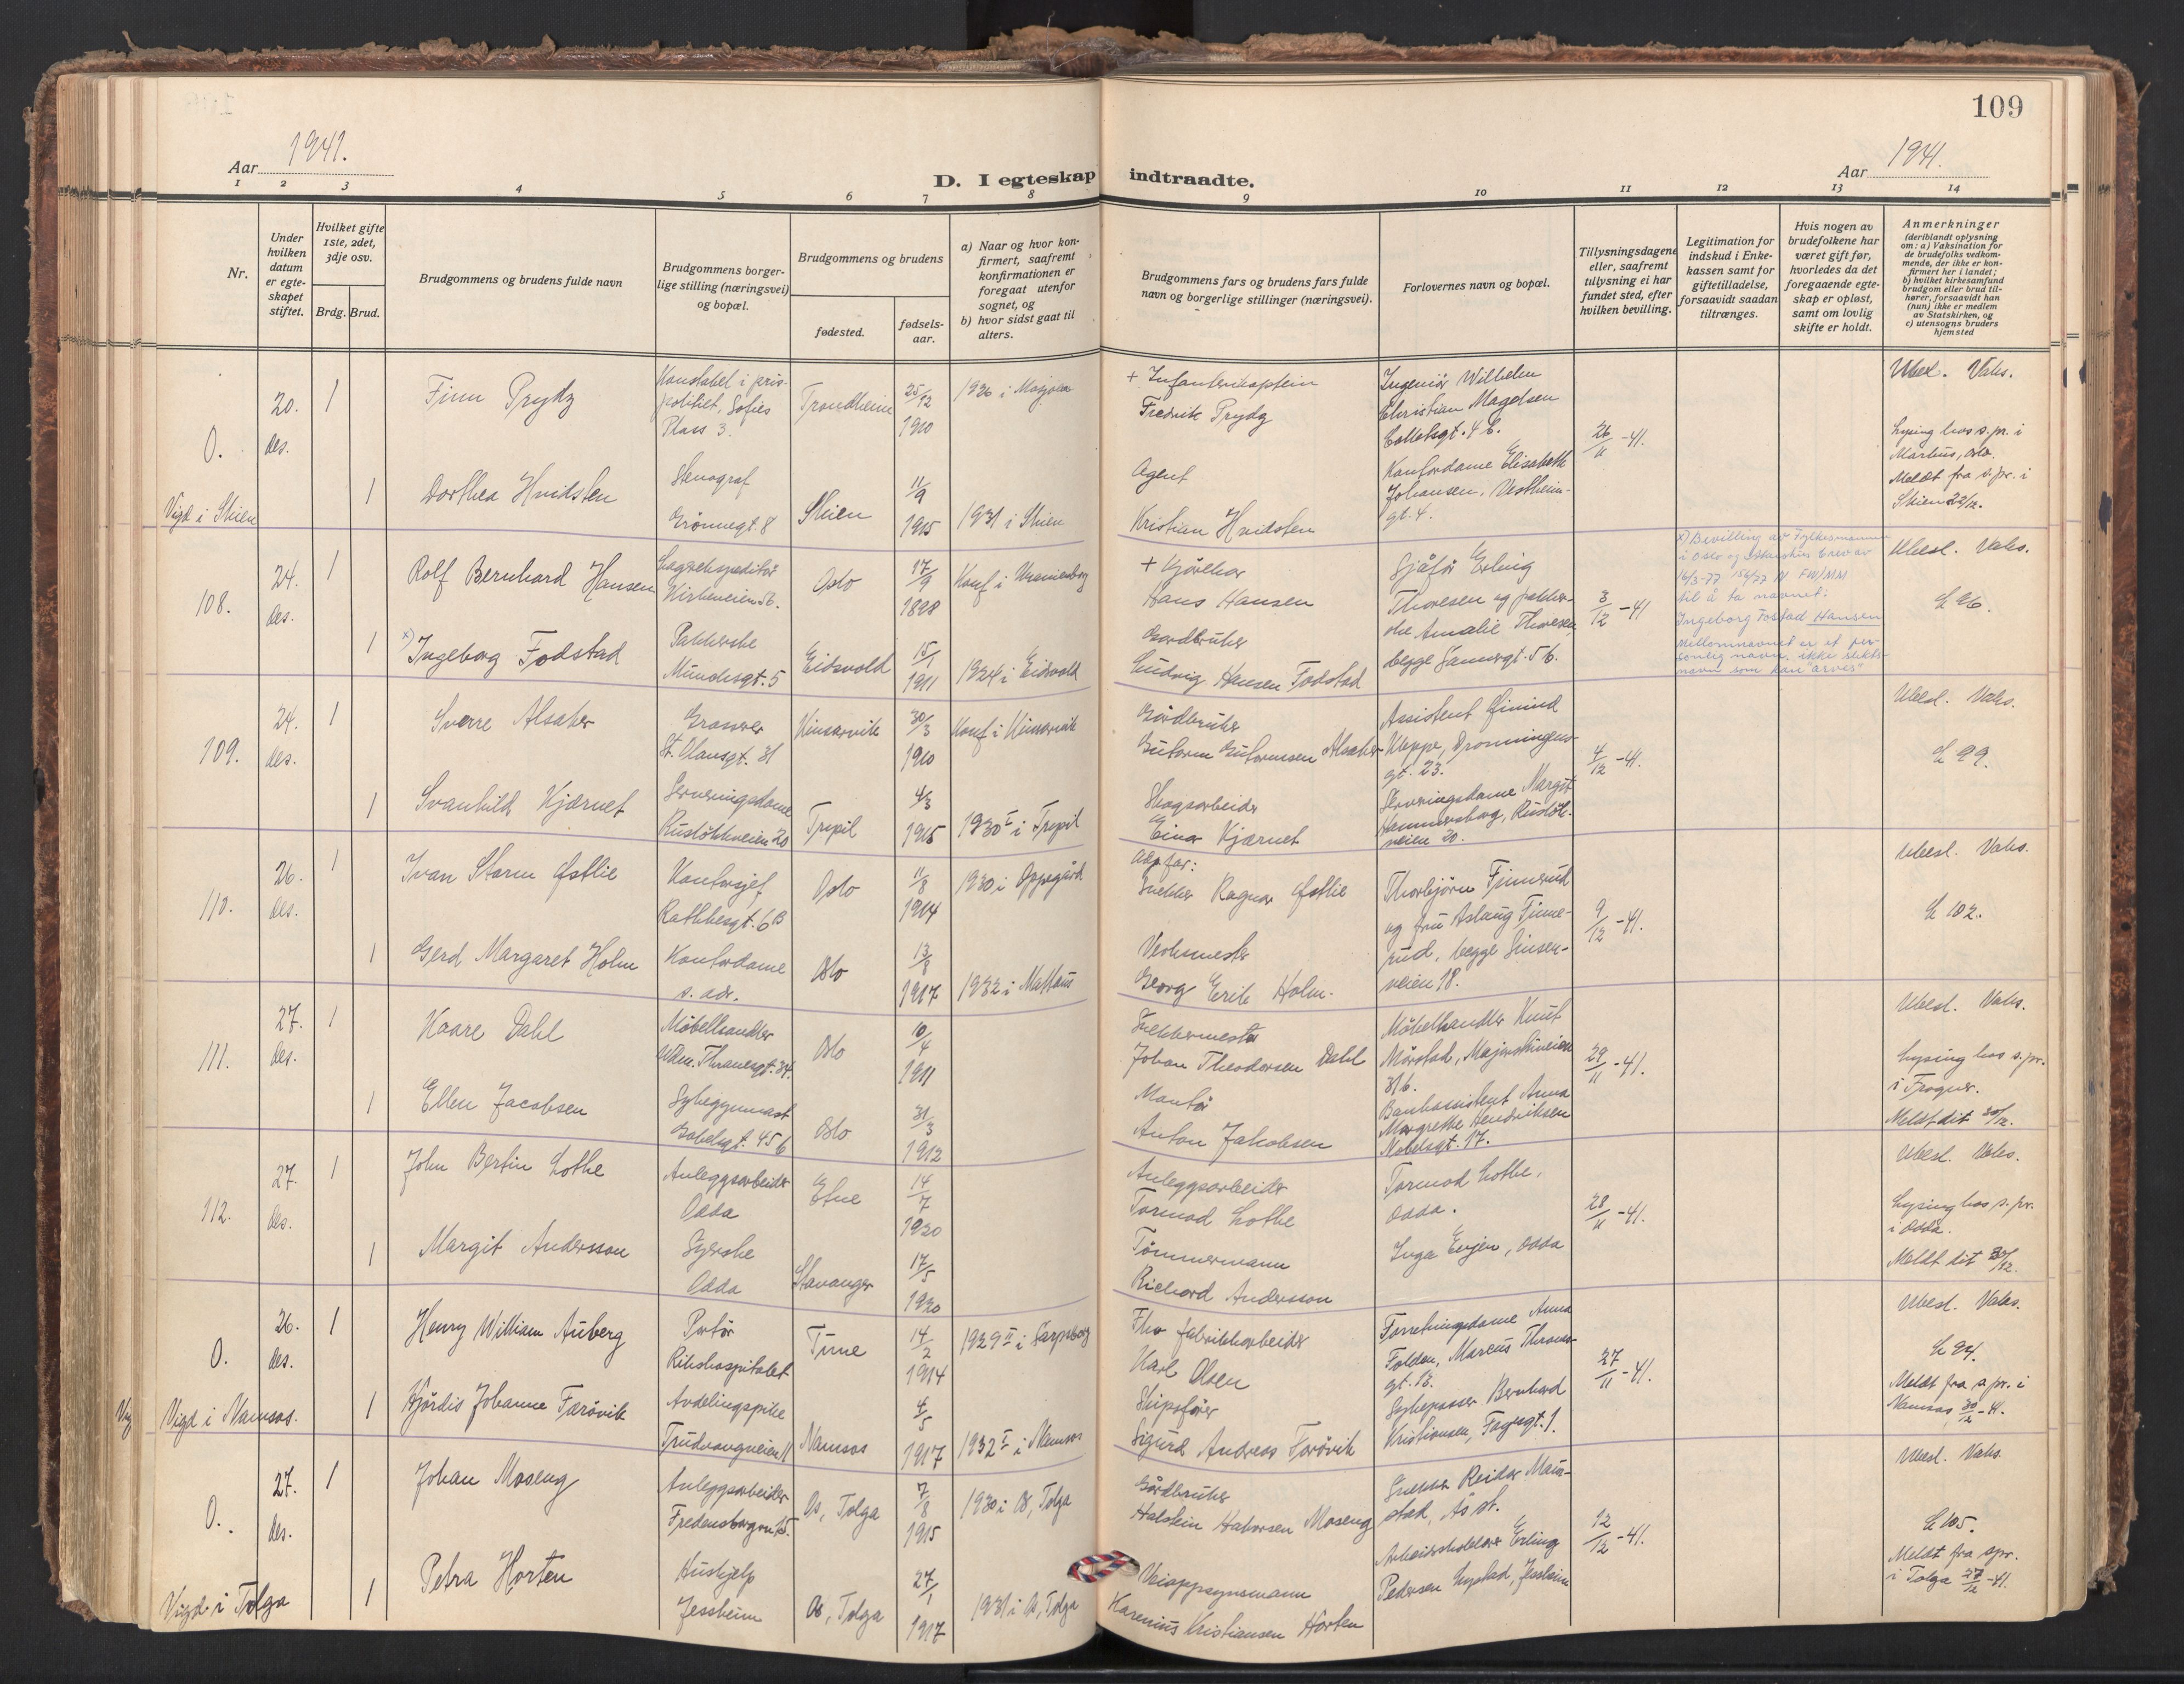 109
Aar 1941.
D. I egteskap indtraadte.
Aar 1941.
1 2 3 4 5 6 7 8 9 10 11 12 13 14
Nr.
Under hvilken datum er egteskapet stiftet.
Hvilket gifte 1ste, 2det, 3dje osv.
Brdg. Brud.
Brudgommens og brudens fulde navn
Brudgommens borgerlige stilling (næringsvei) og bopæl.
Brudgommens og brudens
fødested.
fødselsaar.
a) Naar og hvor konfirmert, saafremt konfirmationen er foregaat utenfor sognet, og
b) hvor sidst gaat til alters.
Brudgommens fars og brudens fars fulde navn og borgerlige stillinger (næringsvei).
Forlovernes navn og bopæl.
Tillysningsdagene eller, saafremt tillysning ei har fundet sted, efter hvilken bevilling.
Legitimation for indskud i Enkekassen samt for giftetilladelse, forsaavidt saadan tiltrænges.
Hvis nogen av brudefolkene har været gift før, hvorledes da det foregaaende egteskap er opløst, samt om lovlig skifte er holdt.
Anmerkninger
(deriblandt oplysning om: a) Vaksination for de brudefolks vedkommende, der ikke er konfirmert her i landet;
b) hvilket kirkesamfund brudgom eller brud tilhører, forsaavidt han (hun) ikke er medlem av Statskirken, og
c) utensogns bruders hjemsted
O.
20. des.
1
Finn Prydz
Konstabel i prispolitiet, Sofies Plass 3.
Trondheim
25/12 1910
1926 i Mosjøen
+ Infanterikaptein
Fredrik Prydz
Ingeniør Wilhelm Christian Magelsen
26/11 -41.
Ubesl. Vaks.
Lysing hos s.pr. i Markus, Oslo.
Meldt fra s.pr. i Skien 22/12.
Vigd i Skien
1
Dorthea Hvidsten
Stenograf
Grønnegt 8
Skien
11/9 1915
1931 i Skien
Agent
Kristian Hvidsten
Kontordame Elisabeth Johansen, Vestheimgt. 4.
108.
24. des.
1
Rolf Bernhard Hansen
Lagerekspeditør
Kirkeveien 56.
Oslo
17/9 1898
Konf i Uranienborg
+ Kjørekar
Hans Hansen
Sjåfør Erling Thoresen og pakkerske Amalie Thoresen begge Sannergt. 5 b.
3/12 -41
x) Bevilling av Fylkesmannen
i Oslo og Akershus brev av
16/3-77 156/77 N FW/MM
til å ta navnet:
Ingeborg Fostad Hansen
Mellomnavnet er et personlig navn, ikke slektsnavn som kan "arves"
Ubesl. Vaks.
L 96.
1
x) Ingeborg Fodstad
Pakkerske
Munchsgt. 5
Eidsvold
15/1 1911
1924 i Eidsvold
Gårdbruker
Ludvig Hansen Fodstad
109.
24. des.
1
Sverre Alsaker
Grosserer
St. Olavsgt. 31
Kinsarvik
30/3 1910
Konf i Kinsarvik
Gårdbruker
Guttorm Guttormsen Alsaker
Assistent Eivind Kleppe, Dronningensgt. 23.
4/12 -41.
Ubesl. Vaks.
L 99.
1
Svanhild Kjærnet
Serveringsdame
Ruseløkkveien 20
Trysil
4/3 1915
1930 I i Trysil
Skogsarbeider
Einar Kjærnet
Serveringsdame Margit Hammersborg, Ruseløkveien 20.
110.
26. des.
1
Ivan Storm Østlie
Kontorsjef
Rathkesgt. 6 B
Oslo
11/8 1914
1930 i Oppegård
Adp.far:
Snekker Ragnar Østlie
Thorbjørn Finnerud og fru Aslaug Finnerud, begge Sinsenveien 18.
9/12 -41.
Ubesl. Vaks.
L 102.
1
Gerd Margaret Holm
Kontordame
s. adr.
Oslo
13/8 1917
1932 i Mattæus
Verksmester
Georg Erik Holm.
111.
27. des.
1
Kaare Dahl
Møbelhandler
Wdm. Thranesgt. 34.
Oslo
10/4 1911
Snekkermester
Johan Theodorsen Dahl
Møbelhandler Knut Mørstad, Majorstuveien 31 b.
29/11 -41.
Ubesl. Vaks.
Lysing hos s.pr. i Frogner.
Meldt dit 30/12.
1
Ellen Jacobsen
Sykegymnast
Gabelsgt. 45 b
Oslo
31/3 1912
Montør
Anton Jakobsen
Bankassistent Anna Margrethe Hendriksen
Nobelsgt. 17.
112.
27. des.
1
John Bertin Lothe
Anleggsarbeider
Odda
Etne
14/7 1920
Anleggsarbeider
Tormod Lothe
Tormod Lothe, Odda.
28/11 -41.
Ubesl. Vaks.
Lysing hos s.pr. i Odda.
Meldt dit 30/12.
1
Margit Andersson
Syerske
Odda
Stavanger
17/5 1920
Tømmermann
Richard Andersson
Inga Eigen, Odda
O.
26. des.
1
Henry William Auberg
Portør
Rikshospitalet
Tune
14/2 1914
1929 II i Sarpsborg
Fhv fabrikkarbeider
Karl Olsen
Forretningsdame Anna Folden, Marcus Thranesgt. 13.
27/11 -41.
Ubesl. Vaks.
L 94.
Meldt fra s.pr. i Namsos 30/12 -41.
Vig Vigd i Namsos.
1
Hjørdis Johanne Farøvik
Avdelingspike
Trudvangveien 11
Namsos
4/5 1917
1932 I i Namsos
Skipsfører
Sigurd Andreas Farøvik
Sykepasser Bernhard Kristiansen, Fagergt. 1.
O.
27. des.
1
Johan Moseng
Anleggsarbeider
Fredensborgvn 15.
Os, Tolga
7/8 1915
1930 i Os, Tolga
Gårdbruker
Halstein Halvorsen Moseng
Snekker Reidar Maurstad, Ås st.
12/12 -41.
Ubesl. Vaks.
L 105.
Meldt fra spr. i Tolga 27/12 -41.
Vigd i Tolga
1
Petra Horten
Hushjelp
Jessheim
Os, Tolga
27/1 1917
1931 i Os, Tolga
Veioppsynsmann
Karenius Kristiansen Horten
Erling Pedersen Jessheim